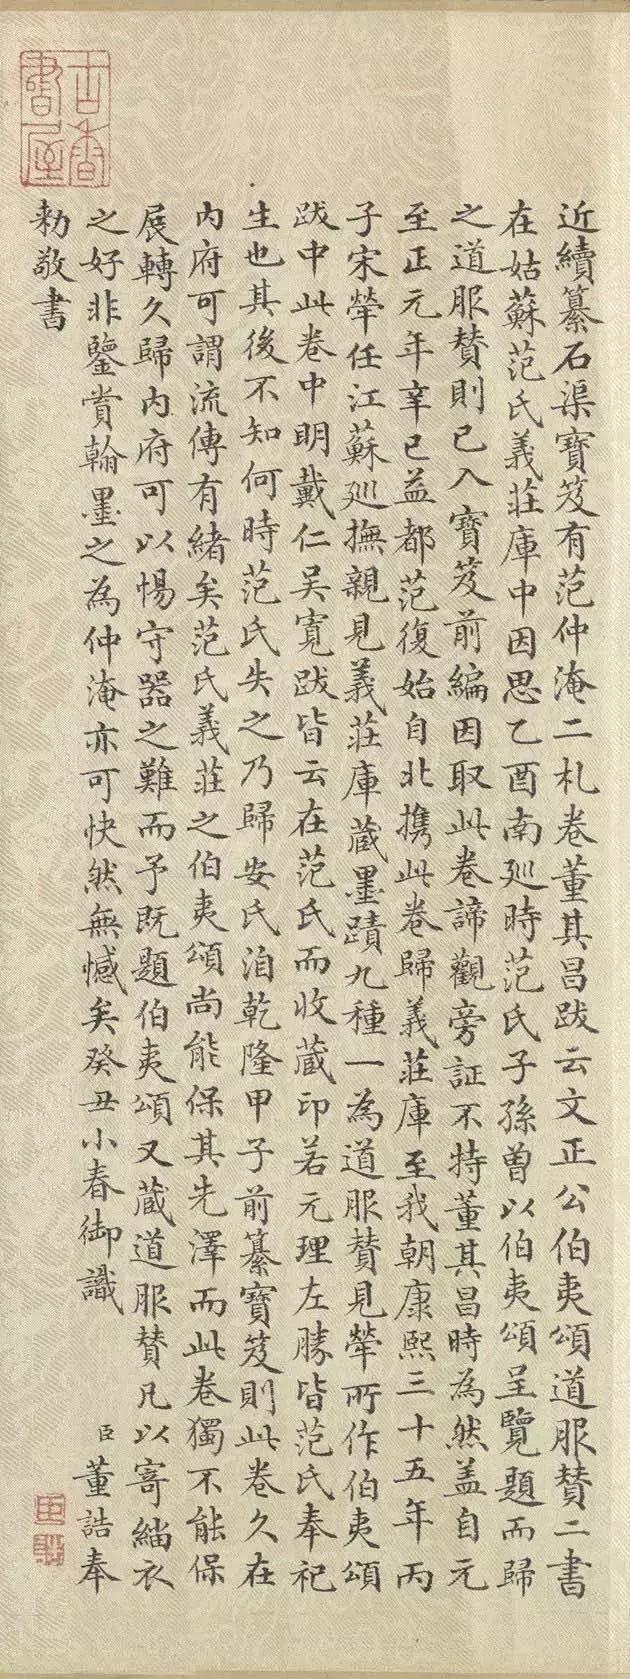 近續纂石渠寶笈有范仲淹二札卷董其昌跋云文正公伯夷頌道服贊二書
在姑蘇范氏義莊庫中因思乙酉南廵時范氏子孫曾以伯夷頌呈覽題而歸
之道服贊則已入寶笈前編因取此卷諦觀旁証不特董其昌時為然盖自元
至正元年辛巳益都范復始自北攜此卷歸義莊庫至我朝康熙三十五年丙
子宋犖任江蘇廵撫親見義莊庫蔵墨蹟九種一為道服贊見犖所作伯夷頌
跋中此卷中明戴仁吴寬跋皆云在范氏而收蔵印若元理左勝皆范氏奉祀
生也其後不知何時范氏失之乃歸安氏洎乾隆甲子前纂寶笈則此卷久在
内府可謂流傳有緒矣范氏義莊之伯夷頌尚能保其先澤而此卷獨不能保
展轉久歸内府可以惕守器之難而予既題伯夷頌又蔵道服贊凡以寄緇衣
之好非鑒賞翰墨之為仲淹亦可快然無憾矣癸丑小春御識 臣董誥奉
勅敬書
古香書屋
臣